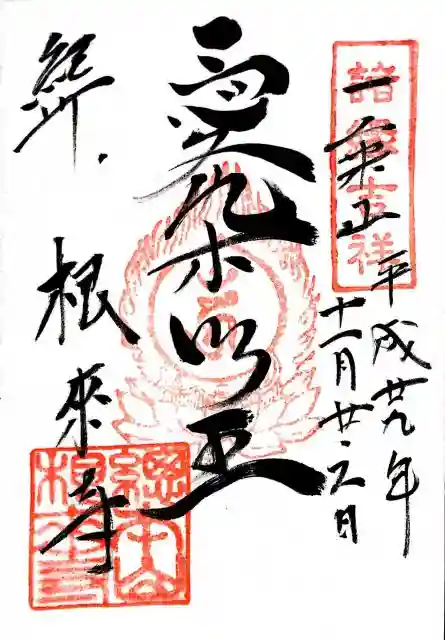 諸縁吉祥
一乗山
平成廿九年
十一月廿六日
愛染明王
紀州
根來寺
總本山